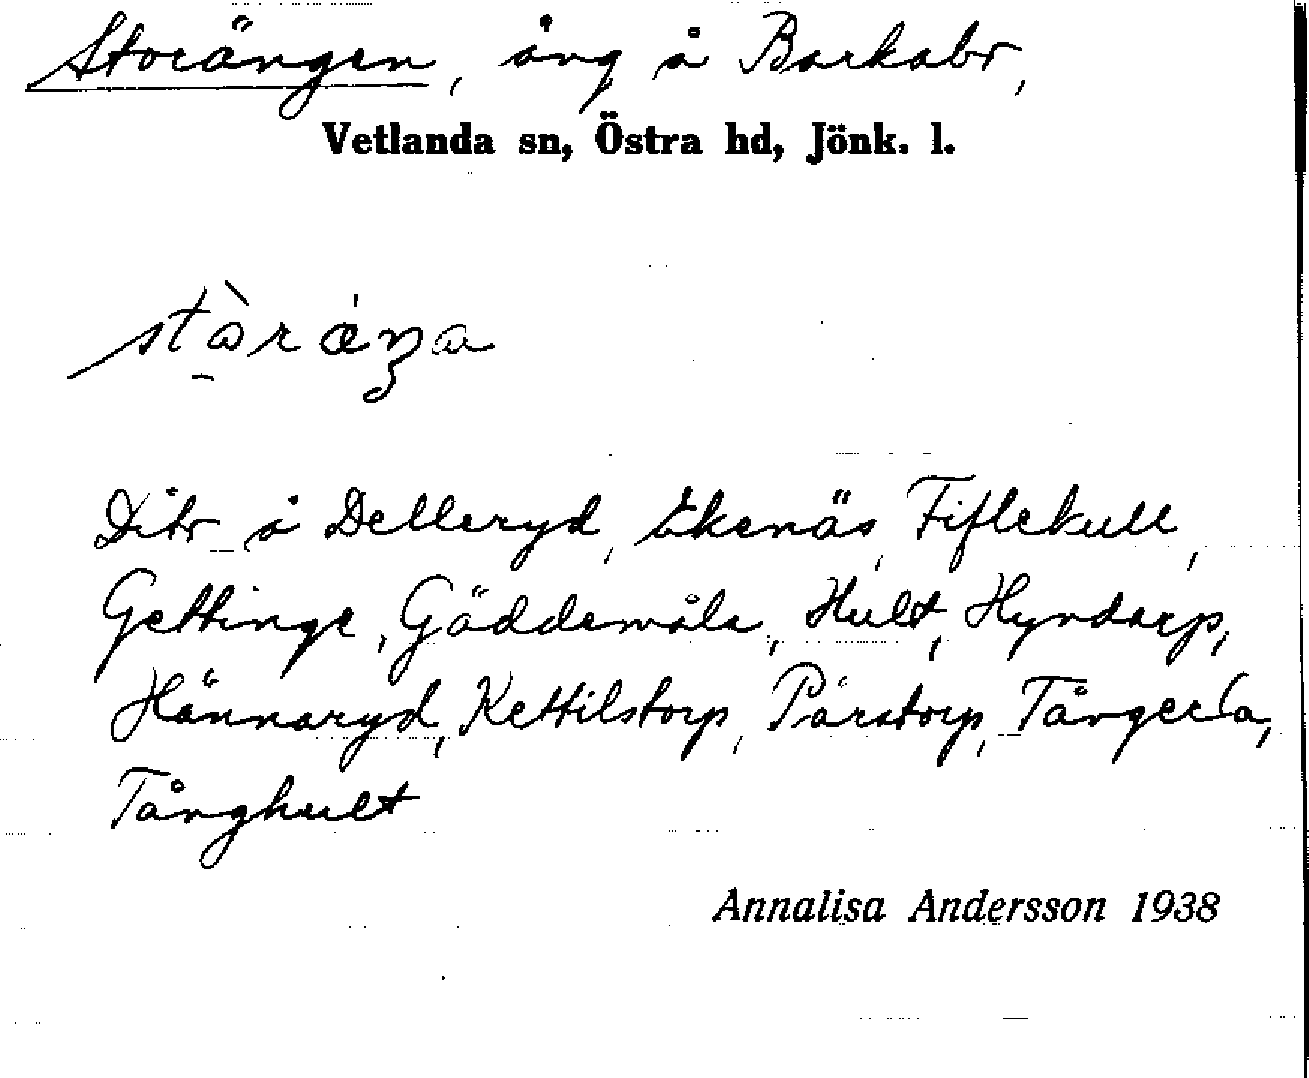 Storängen, äng å Barkabo,
Vetlanda sn, Östra hd, Jönk. l.
Dito å Delleryd, Ekenäs, Fiflekull,
Gettinge, Gäddemåla, Hult, Hyndarp,
Hännaryd, Kettilstorp, Pärstorp, Tångerda,
Tånghult
Annalisa Andersson 1938